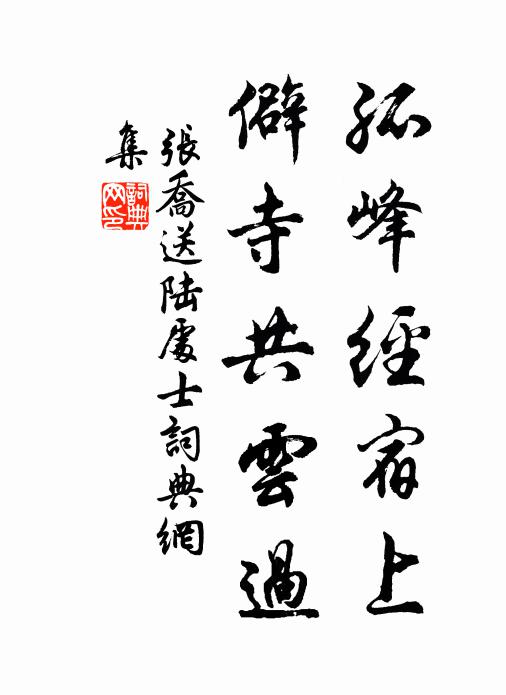 孤峰經宿上
僻寺共雲過
張喬送陸處士詞典網
集
詞典網印